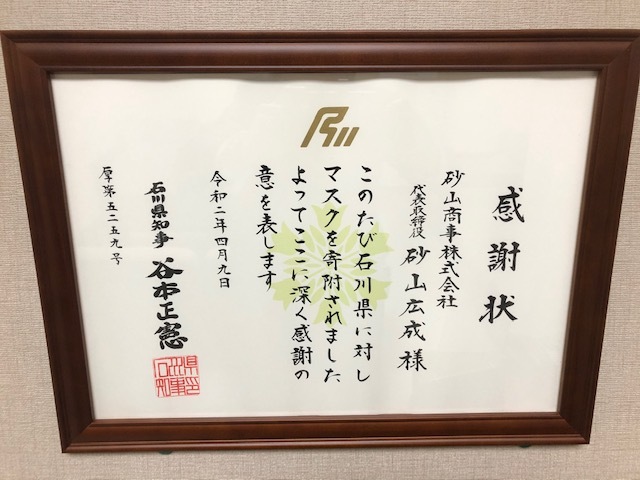 感謝状
砂山商事株式会社
代表取締役 砂山広成様
このたび石川県に対し
マスクを寄附されました
よってここに深く感謝の
意を表します
令和二年四月九日
石川県知事 谷本正憲
厚第五二五九号
石川県知事印